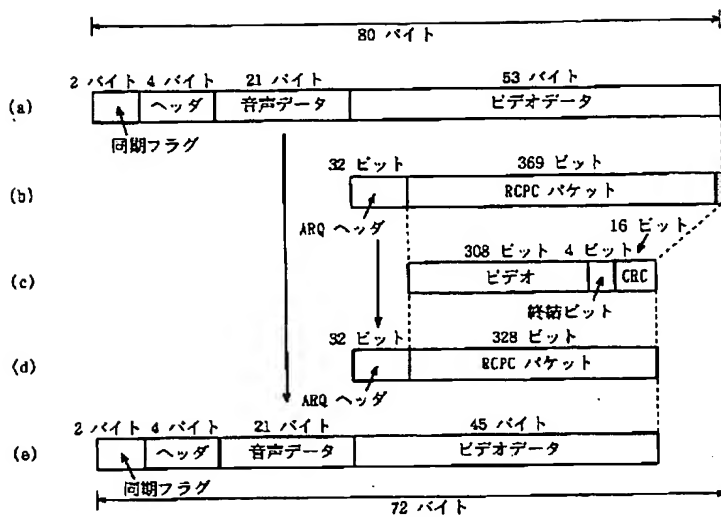 80 バイト
2 バイト 4 バイト 21 バイト 53 バイト
(a) ヘッダ 音声データ ビデオデータ
同期フラグ
32 ビット 369 ビット
(b) RCPC パケット
ARQ ヘッダ
16 ビット
308 ビット 4 ビット
(c) ビデオ CRC
終結ビット
32 ビット 328 ビット
(d) RCPC パケット
ARQ ヘッダ
2 バイト 4 バイト 21 バイト 45 バイト
(e) ヘッダ 音声データ ビデオデータ
同期フラグ
72 バイト